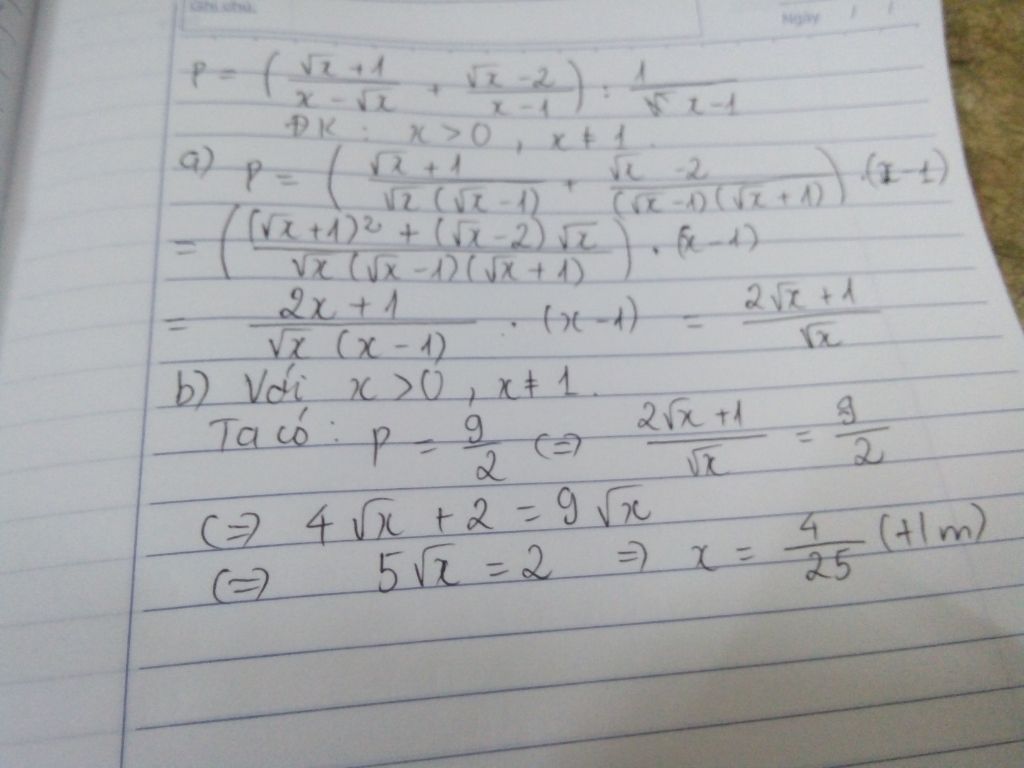 Ghi chú:
Ngày / /
P = ( (√x + 1)/(x - √x) + (√x - 2)/(x - 1) ) : 1/(√x - 1)
ĐK : x > 0 , x ≠ 1.
a) P = ( (√x + 1)/(√x (√x - 1)) + (√x - 2)/((√x - 1)(√x + 1)) ) . (x - 1)
= ( ((√x + 1)² + (√x - 2) √x)/(√x (√x - 1)(√x + 1)) ) . (x - 1)
= (2x + 1)/(√x (x - 1)) . (x - 1) = (2√x + 1)/√x
b) Với x > 0 , x ≠ 1.
Ta có : P = 9/2 (=) (2√x + 1)/√x = 9/2
(=) 4√x + 2 = 9√x
(=) 5√x = 2 => x = 4/25 (t/m)